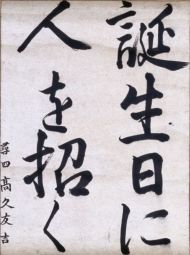 誕生日に
人を招く
尋四 高久友吉